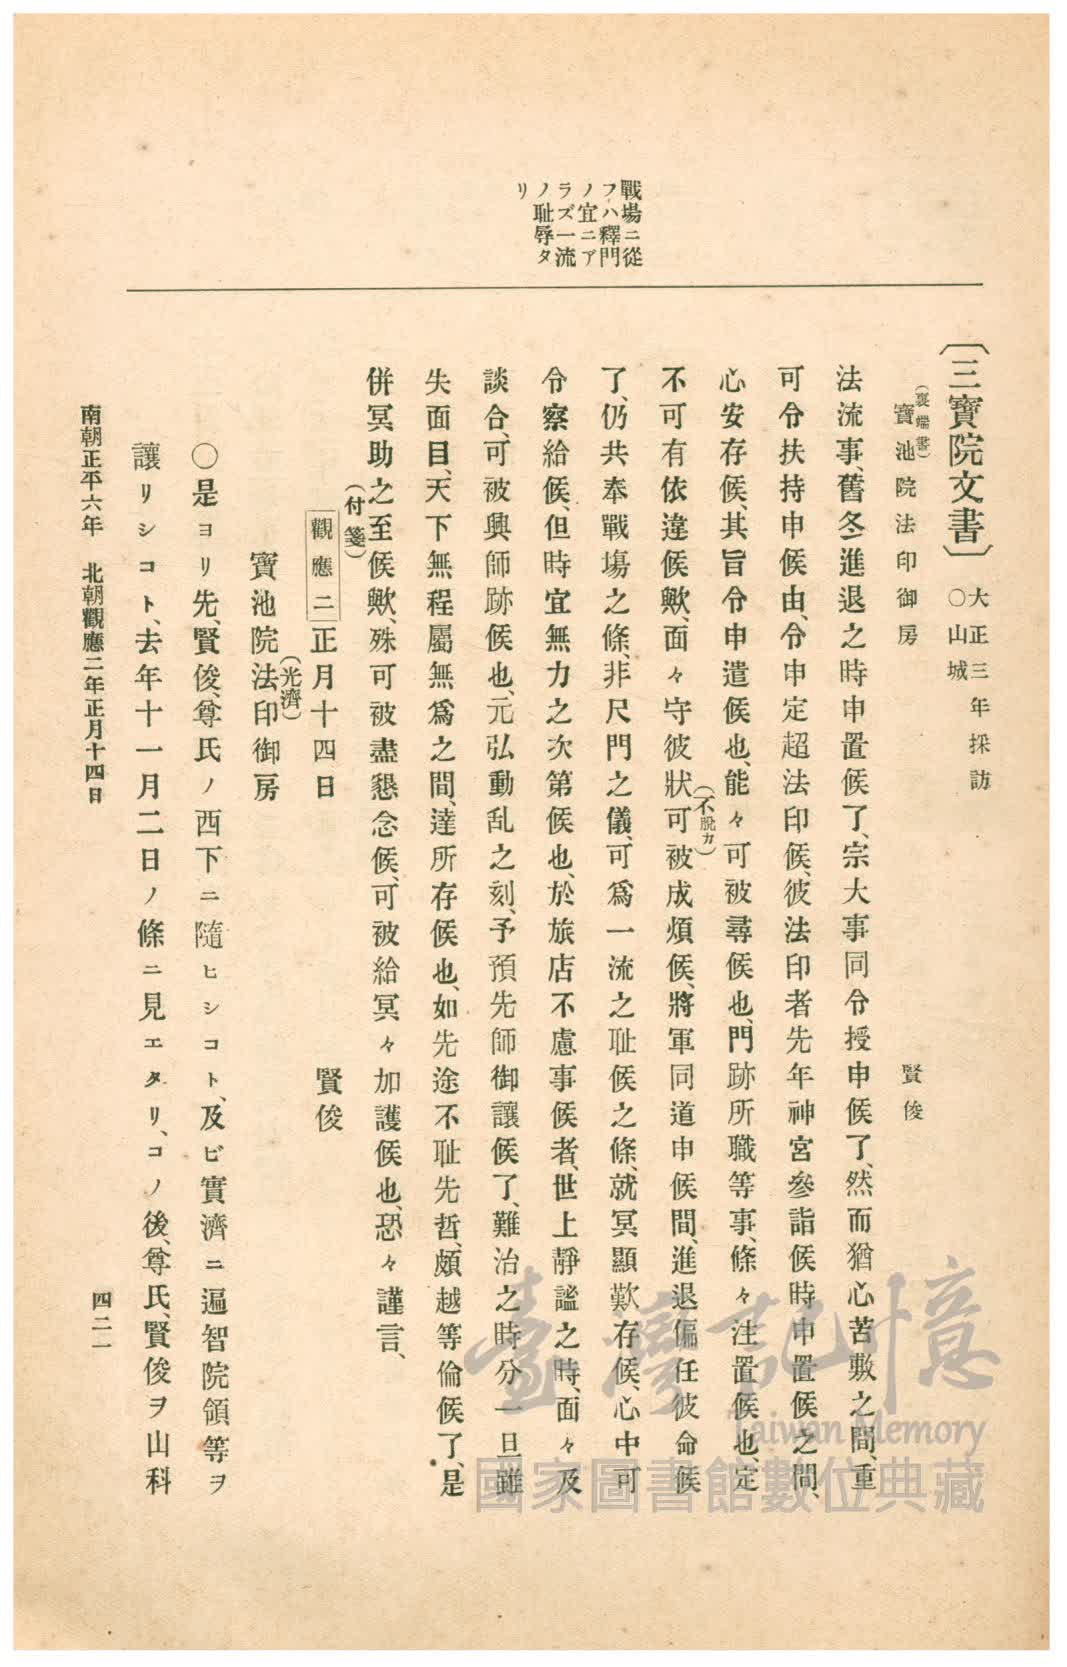 戰場ニ從
フハ釋門
ノ宜ニア
ラズ一流
ノ耻辱タ
リ
〔三寶院文書〕大正三年採訪
○山城
(裏端書)
寶池院法印御房　賢俊
法流事、舊冬進退之時申置候了、宗大事同令授申候了、然而猶心苦敷之間、重
可令扶持申候由、令申定超法印候、彼法印者先年神宮參詣候時申置候之間、
心安存候、其旨令申遣候也、能々可被尋候也、門跡所職等事、條々注置候也、定
(不脫カ)
不可有依違候歟、面々守彼狀可被成煩候、將軍同道申候間、進退偏任彼命候
了、仍共奉戰場之條、非尺門之儀、可爲一流之耻候之條、就冥顯歎存候、心中可
令察給候、但時宜無力之次第候也、於旅店不慮事候者、世上靜謐之時、面々及
談合、可被興師跡候也、元弘動乱之刻、予預先師御讓候了、難治之時分一旦雖
失面目、天下無程屬無爲之間、達所存候也、如先途不耻先哲、頗越等倫候了、是
併冥助之至候歟、殊可被盡懇念候、可被給冥々加護候也、恐々謹言、
(付箋)
觀應二正月十四日　賢俊
(光濟)
寶池院法印御房
○是ヨリ先、賢俊、尊氏ノ西下ニ隨ヒシコト、及ビ實濟ニ遍智院領等ヲ
讓リシコト、去年十一月二日ノ條ニ見エタリ、コノ後、尊氏、賢俊ヲ山科
南朝正平六年　北朝觀應二年正月十四日
四二一
臺灣記憶
Taiwan Memory
國家圖書館數位典藏